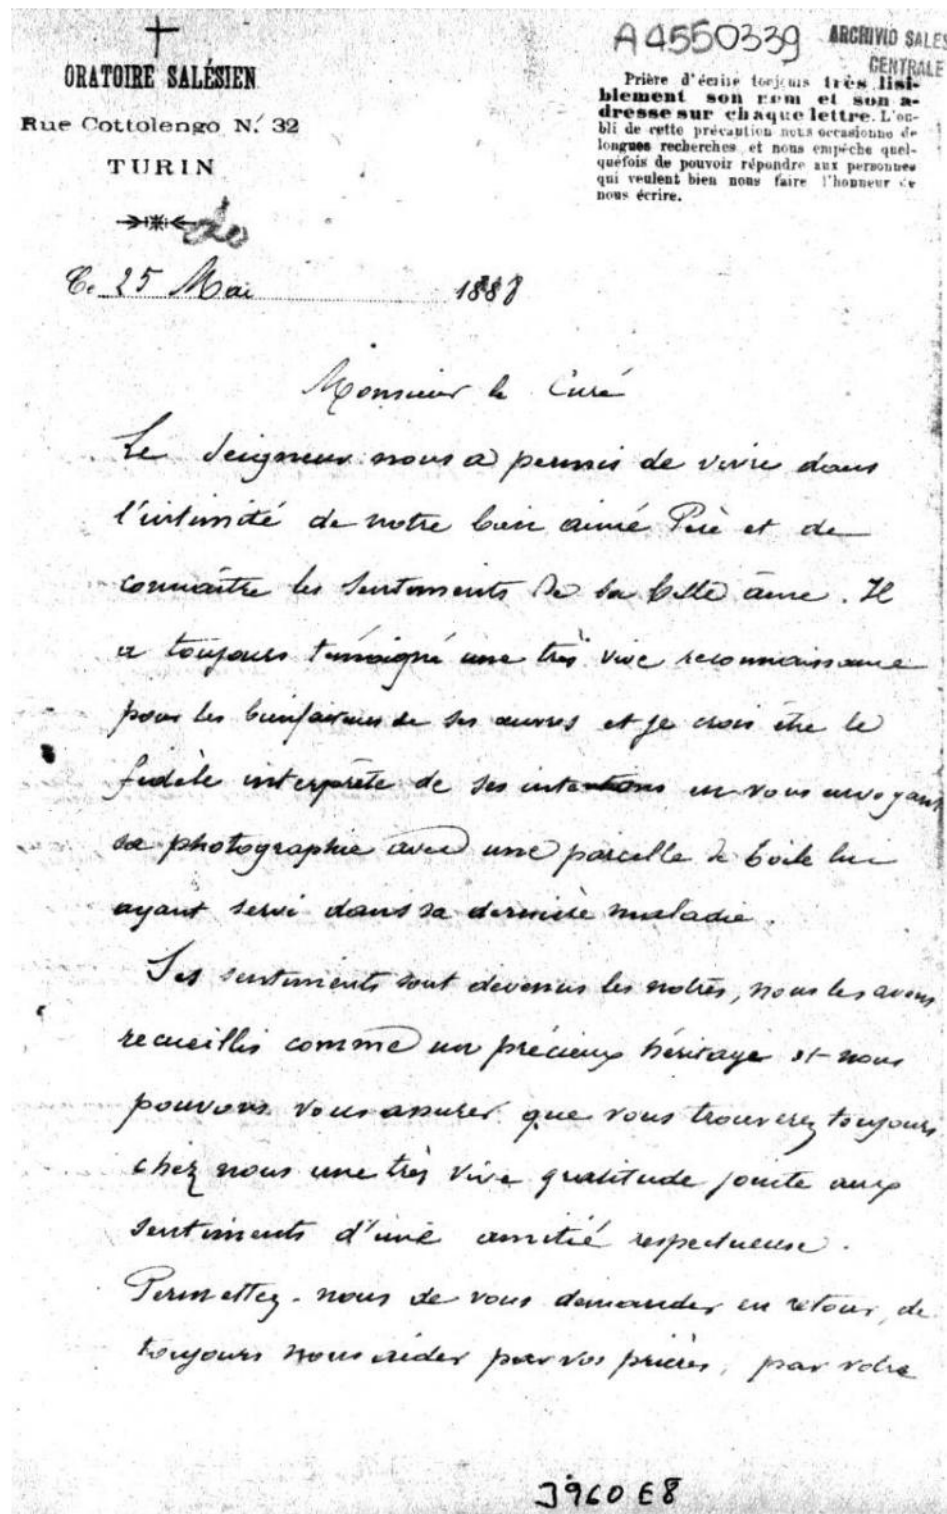 ORATOIRE SALÉSIEN
Rue Cottolengo N.° 32
TURIN
A4550339
ARCHIVIO SALES
CENTRALE
Prière d'écrire toujours très lisi-
blement son nom et son a-
dresse sur chaque lettre. L'ou-
bli de cette précaution nous occasionne de
longues recherches et nous empêche quel-
quefois de pouvoir répondre aux personnes
qui veulent bien nous faire l'honneur de
nous écrire.
Ce 25 Mai 1888
Monsieur le Curé
Le Seigneur nous a permis de vivre dans
l'intimité de notre bien aimé Père et de
connaître les sentiments de sa belle âme. Il
a toujours témoigné une très vive reconnaissance
pour les bienfaiteurs de ses œuvres et je crois être le
fidèle interprète de ses intentions en vous envoyant
sa photographie avec une parcelle de toile lui
ayant servi dans sa dernière maladie.
Ses sentiments sont devenus les notres, nous les avons
recueillis comme un précieux héritage et nous
pouvons vous assurer que vous trouverez toujours
chez nous une très vive gratitude jointe aux
sentiments d'une amitié respectueuse.
Permettez-nous de vous demander en retour, de
toujours nous aider par vos prières, par votre
3960 E8